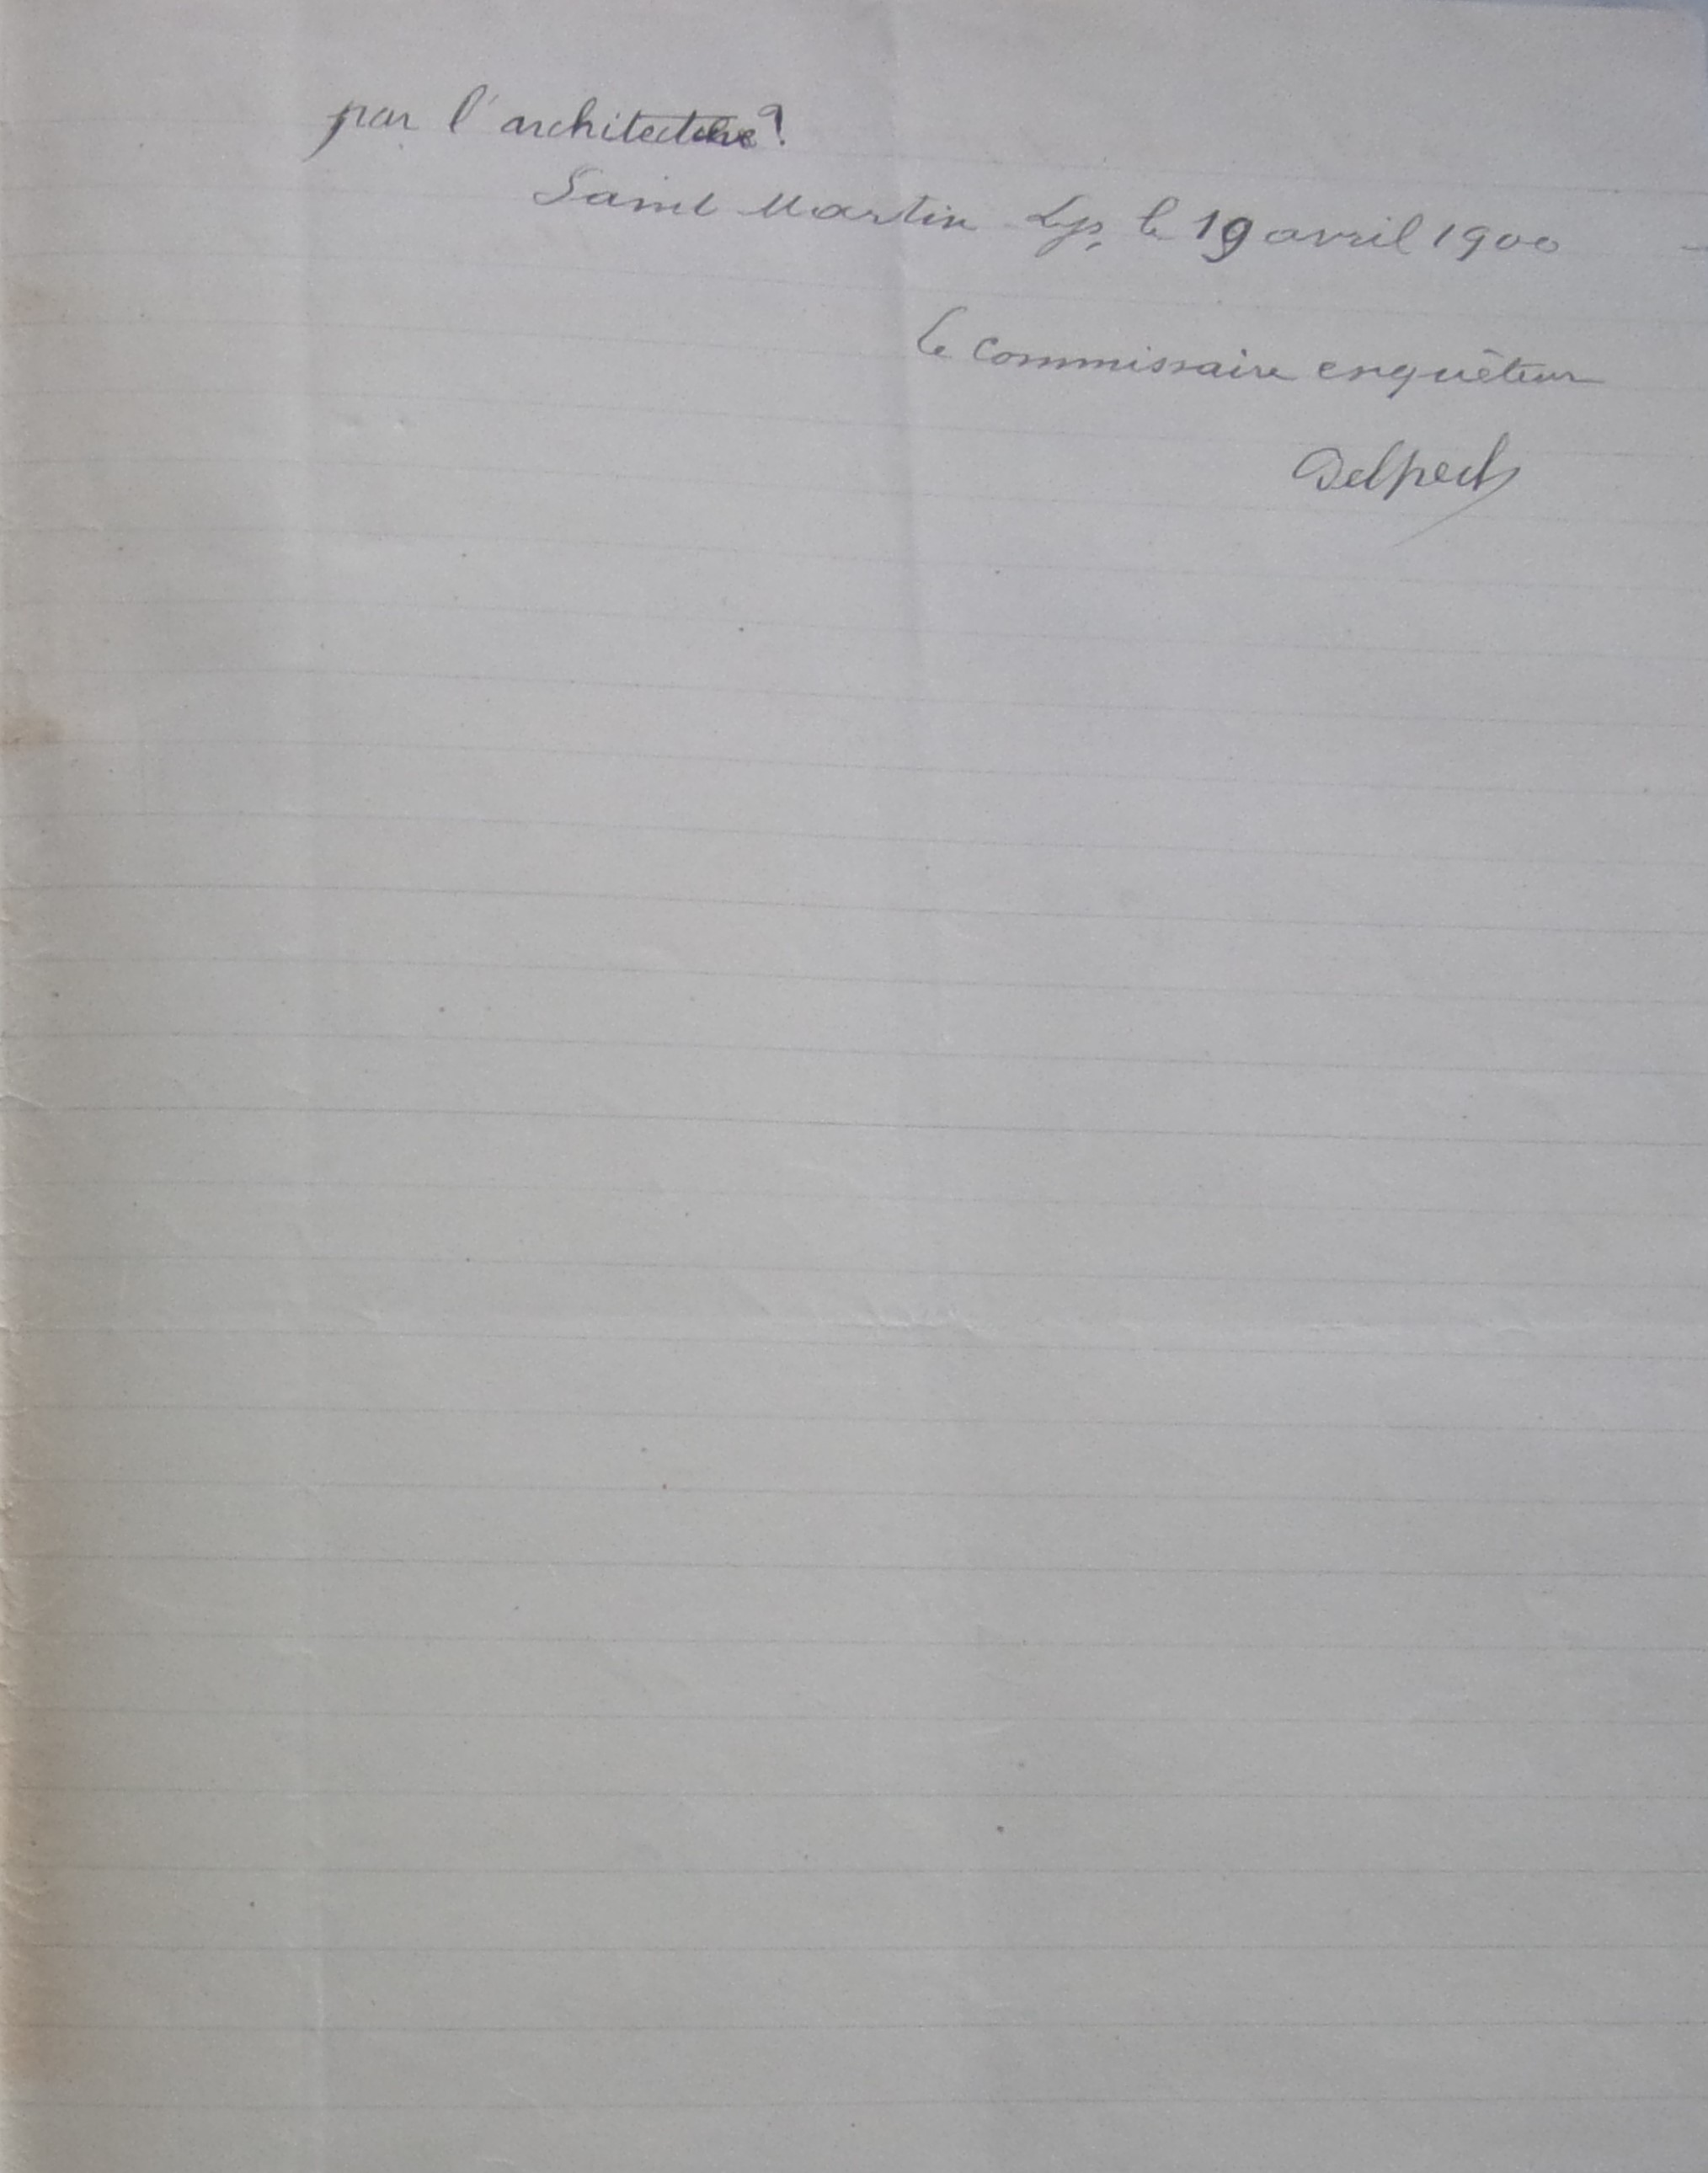 par l'architecture?
Saint Martin Lys, le 19 avril 1900
Le Commissaire enquêteur
Delpech